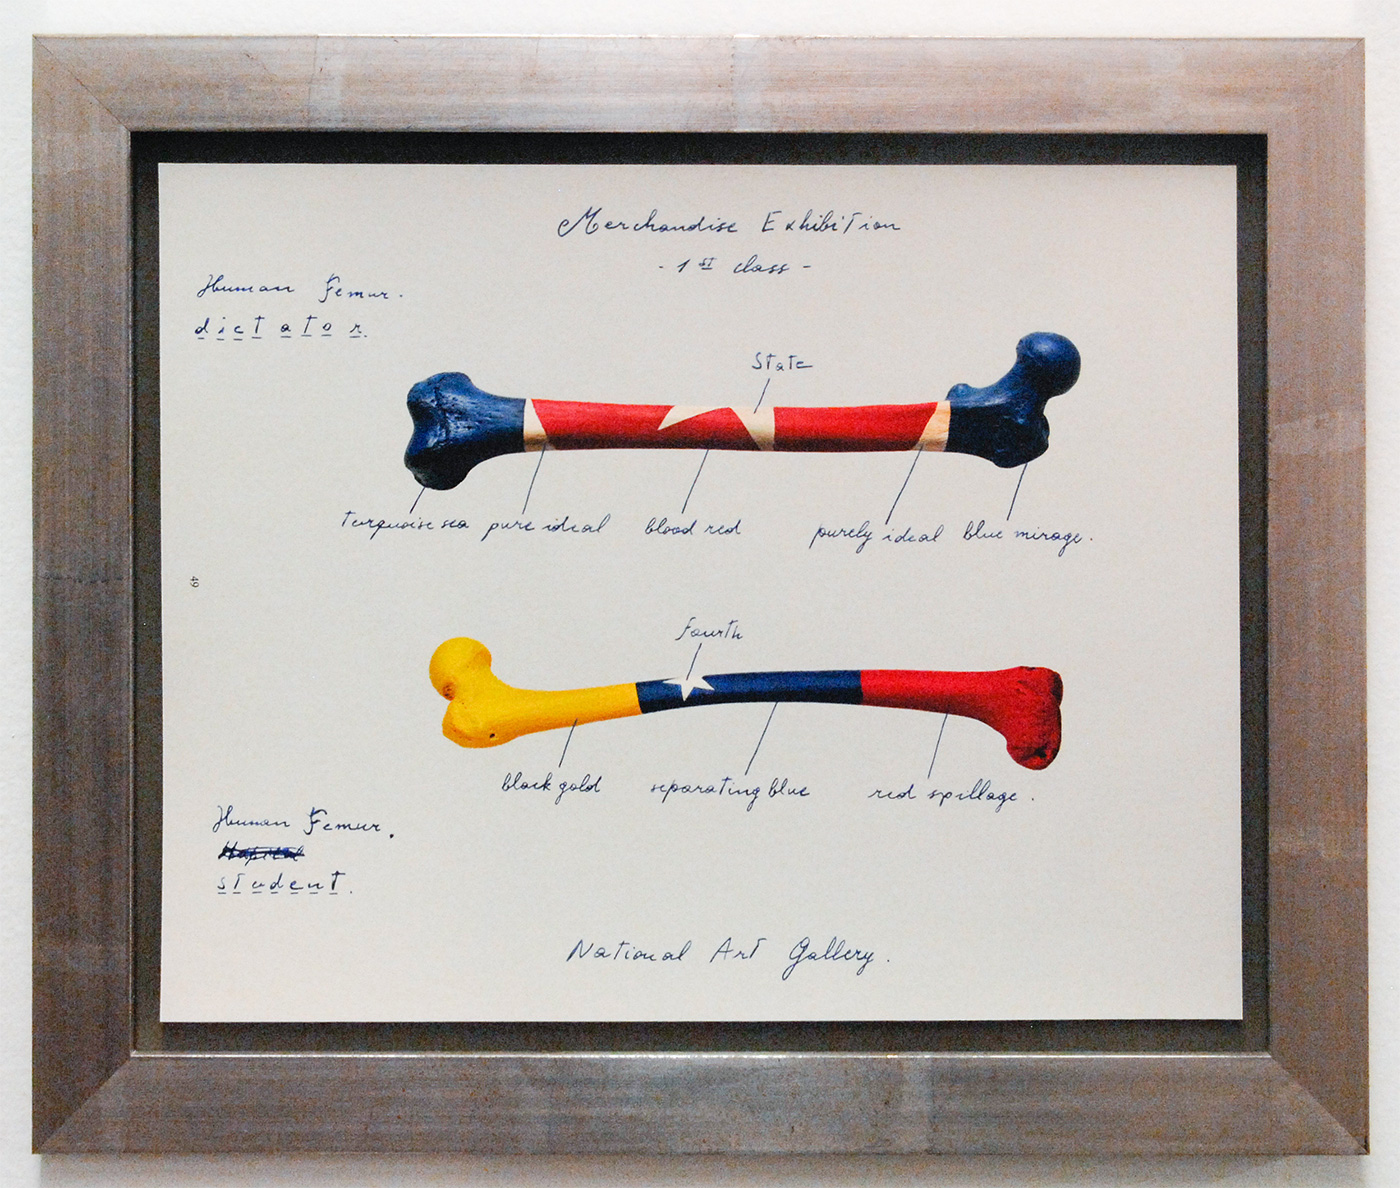 Merchandise Exhibition
- 1st class -
Human Femur.
dictator.
State
turquoise sea pure ideal blood red purely ideal blue mirage.
49
fourth
black gold separating blue red spillage.
Human Femur.
student.
National Art Gallery.